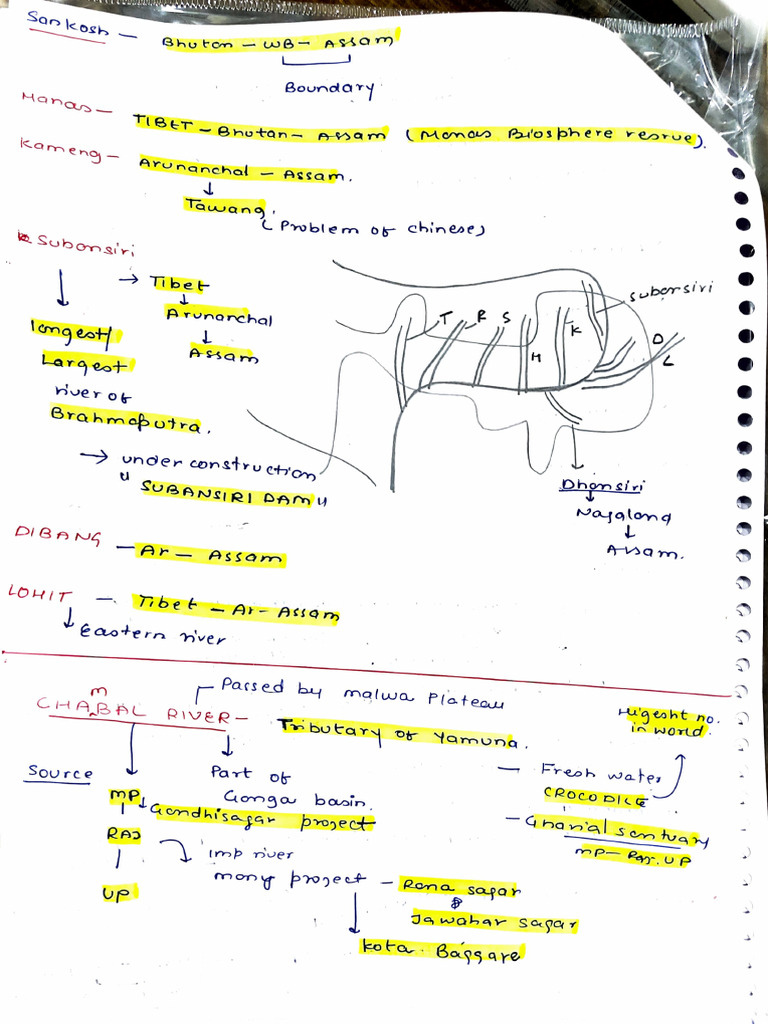 Sankosh — Bhutan – WB – Assam
Boundary
Manas — TIBET – Bhutan – Assam (Manas Biosphere resrue).
Kameng — Arunanchal – Assam.
↓
Tawang.
(Problem of chinese)
Subansiri
→ Tibet
↓
Arunanchal
↓
Assam
longest/
Largest
river of
Brahmaputra.
→ under construction
"SUBANSIRI DAM"
T R S M K
subansiri
D
L
Dhansiri
↓
Nagaland
↓
Assam.
DIBANG — Ar – Assam
LOHIT — Tibet – Ar – Assam
↓ Eastern river
Passed by malwa Plateau
CHAmBAL RIVER — Tributary of Yamuna.
Higesht no.
in world.
Source
MP
RAJ
UP
Part of
Ganga basin.
Gandhisagar project
imp river
many project — Rana sagar
Jawahar sagar
Kota Baggare
— Fresh water
CROCODILE
— Gharial sentuary
MP – Raj. UP